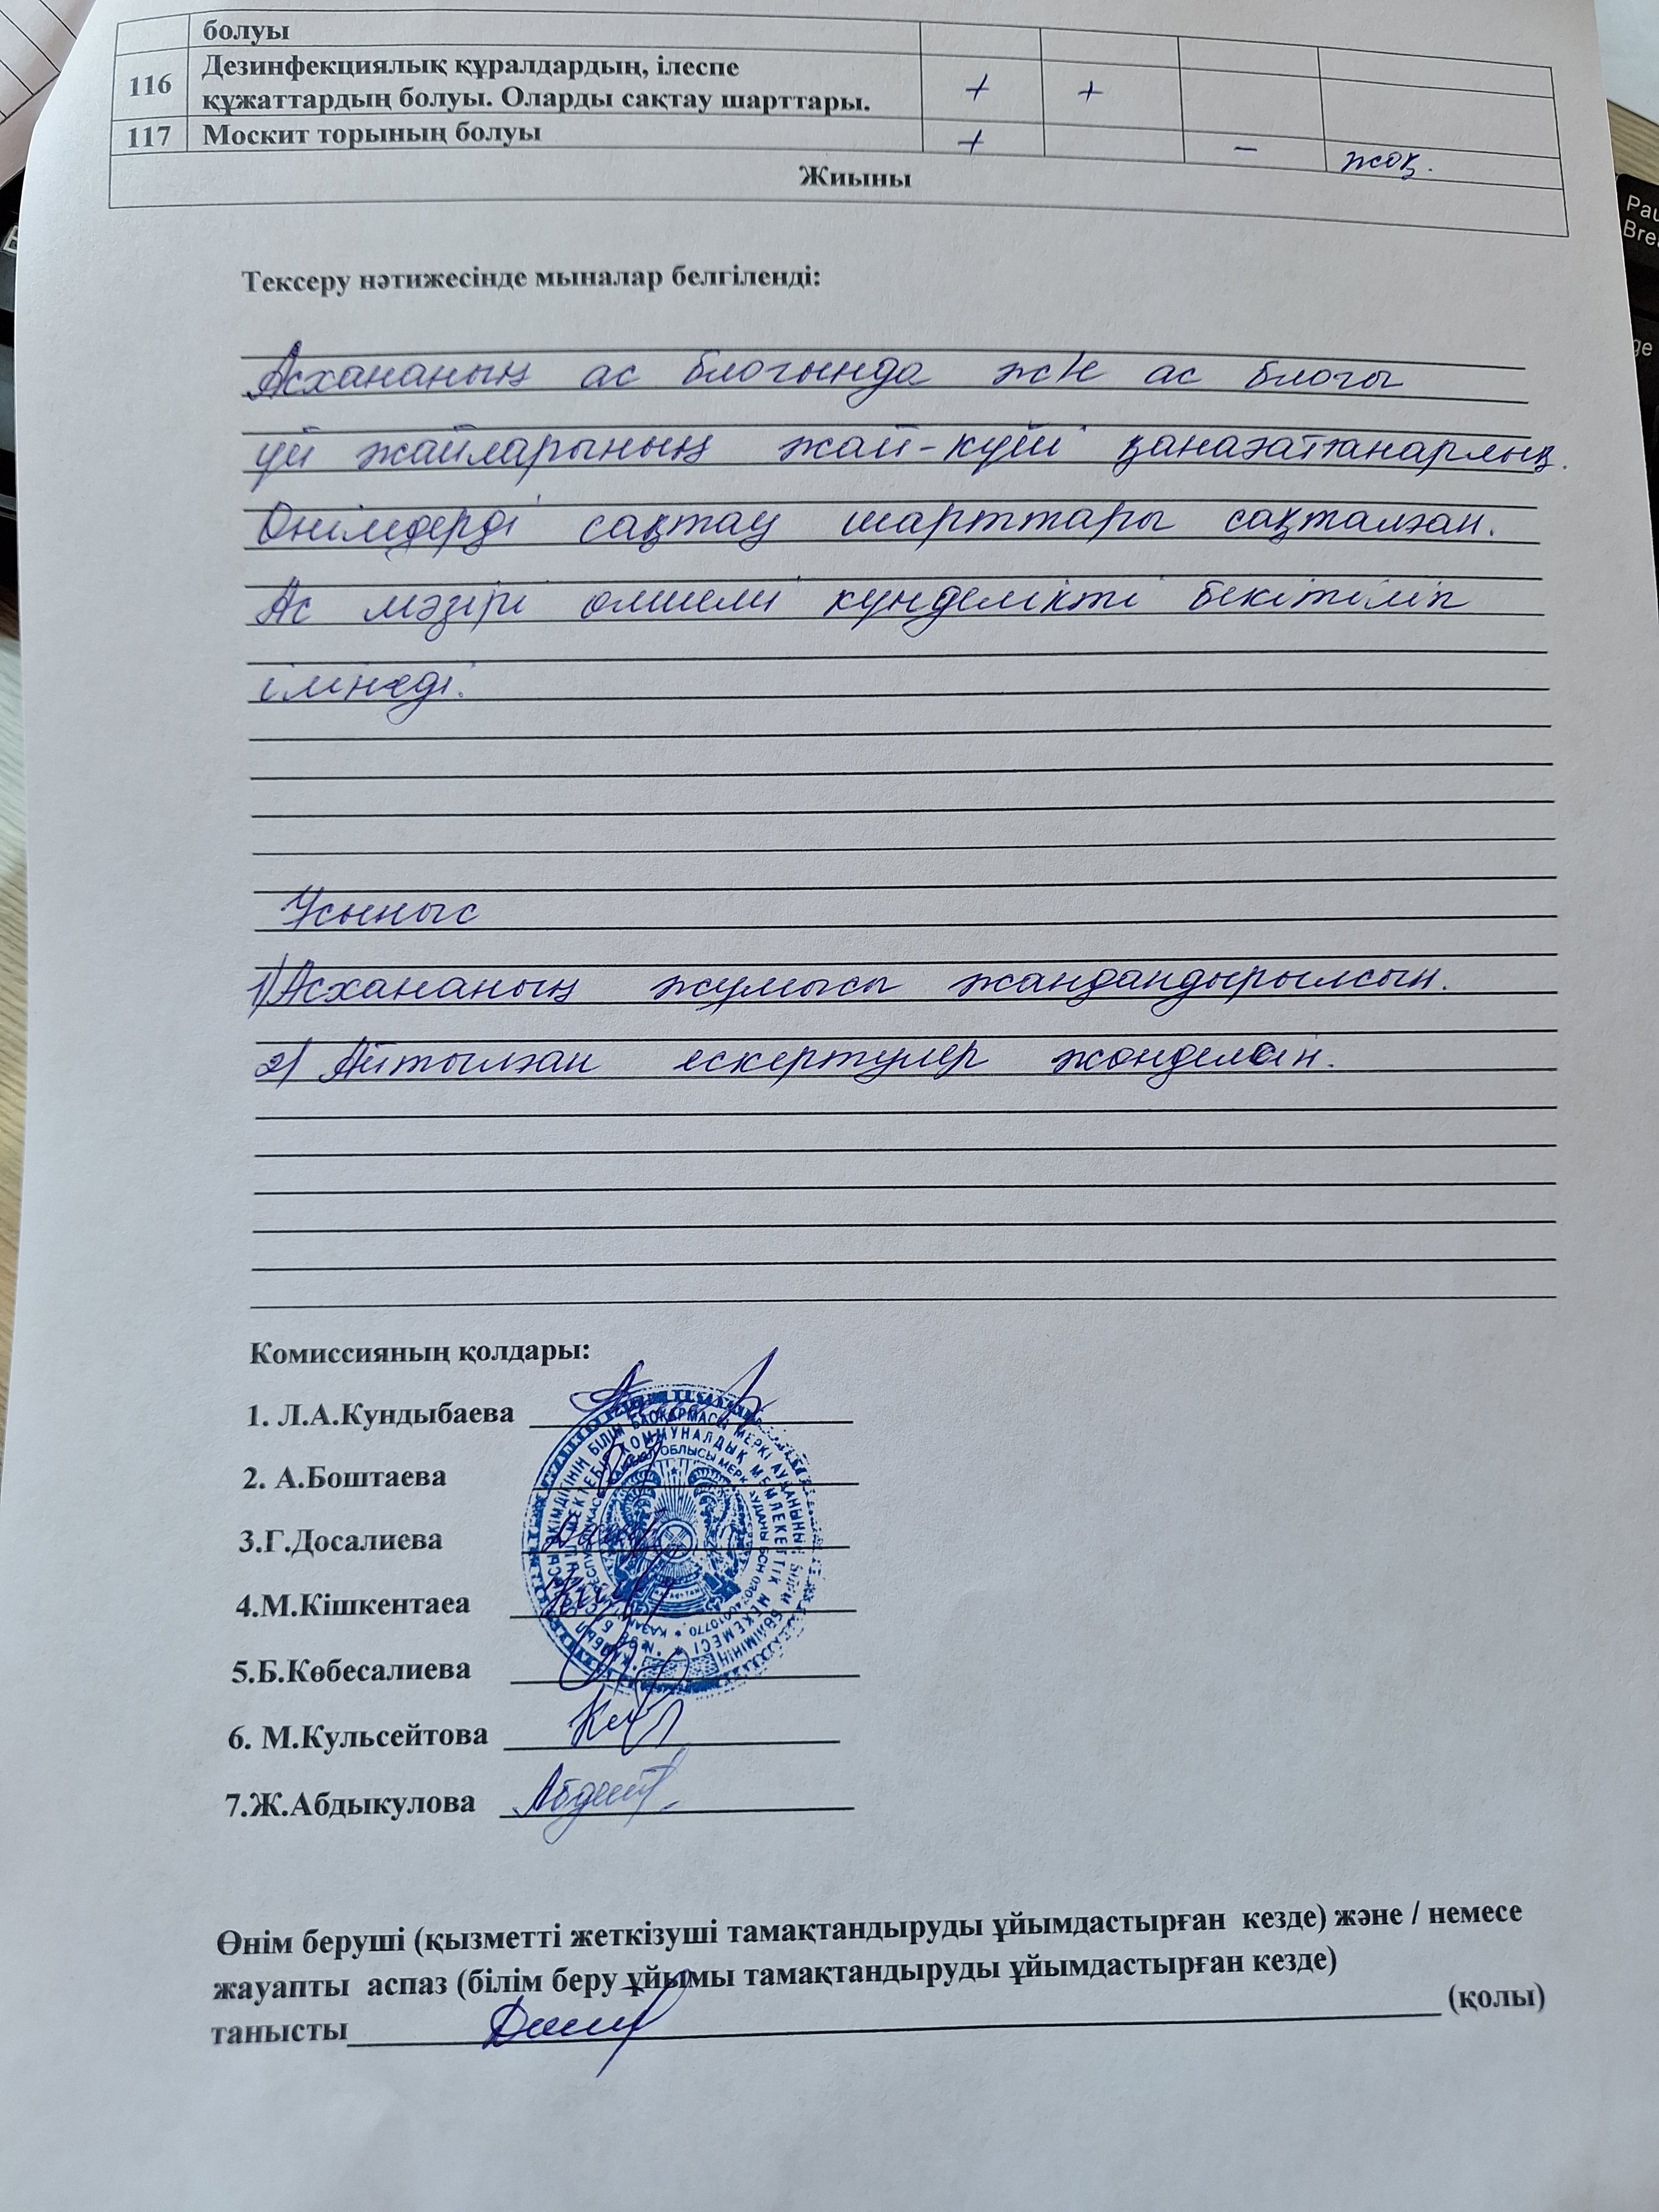 болуы
116 Дезинфекциялық құралдардың, ілеспе
құжаттардың болуы. Оларды сақтау шарттары. + +
117 Москит торының болуы + – жоқ.
Жиыны
Тексеру нәтижесінде мыналар белгіленді:
Асхананың ас блогында және ас блогы
үй жайларының жай-күйі қанағаттанарлық.
Өнімдерді сақтау шарттары сақталған.
Ас мәзірі өлшемі күнделікті бекітіліп
ілінеді.
Ұсыныс
1) Асхананың жұмысы жандандырылсын.
2) Айтылған ескертулер жөнделсін.
Комиссияның қолдары:
1. Л.А.Кундыбаева
2. А.Боштаева
3.Г.Досалиева
4.М.Кішкентаеа
5.Б.Көбесалиева
6. М.Кульсейтова
7.Ж.Абдыкулова
Өнім беруші (қызметті жеткізуші тамақтандыруды ұйымдастырған кезде) және / немесе
жауапты аспаз (білім беру ұйымы тамақтандыруды ұйымдастырған кезде)
танысты (қолы)